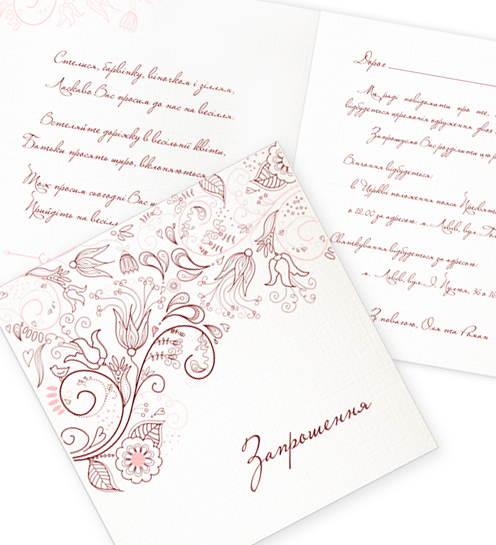 Стелися, барвінку, віночком і зіллям,
Ласкаво Вас просим до нас на весілля.
Встеляйте доріжку в весільні квіти,
Батьки просять щиро, вклоняються
Тож просим сьогодні Вас
Прийдіть на весіл
Дорог
Ми раді повідомити про те,
відбудеться церемонія одруження
Запрошуємо Вас розділити
Вінчання відбудеться:
в Церкві положення пояса
о 12.00 за адресою: м. Львів, вул.
Святкування відбудеться за адресою:
м. Львів, вул.
З повагою, Оля та Роман
Запрошення